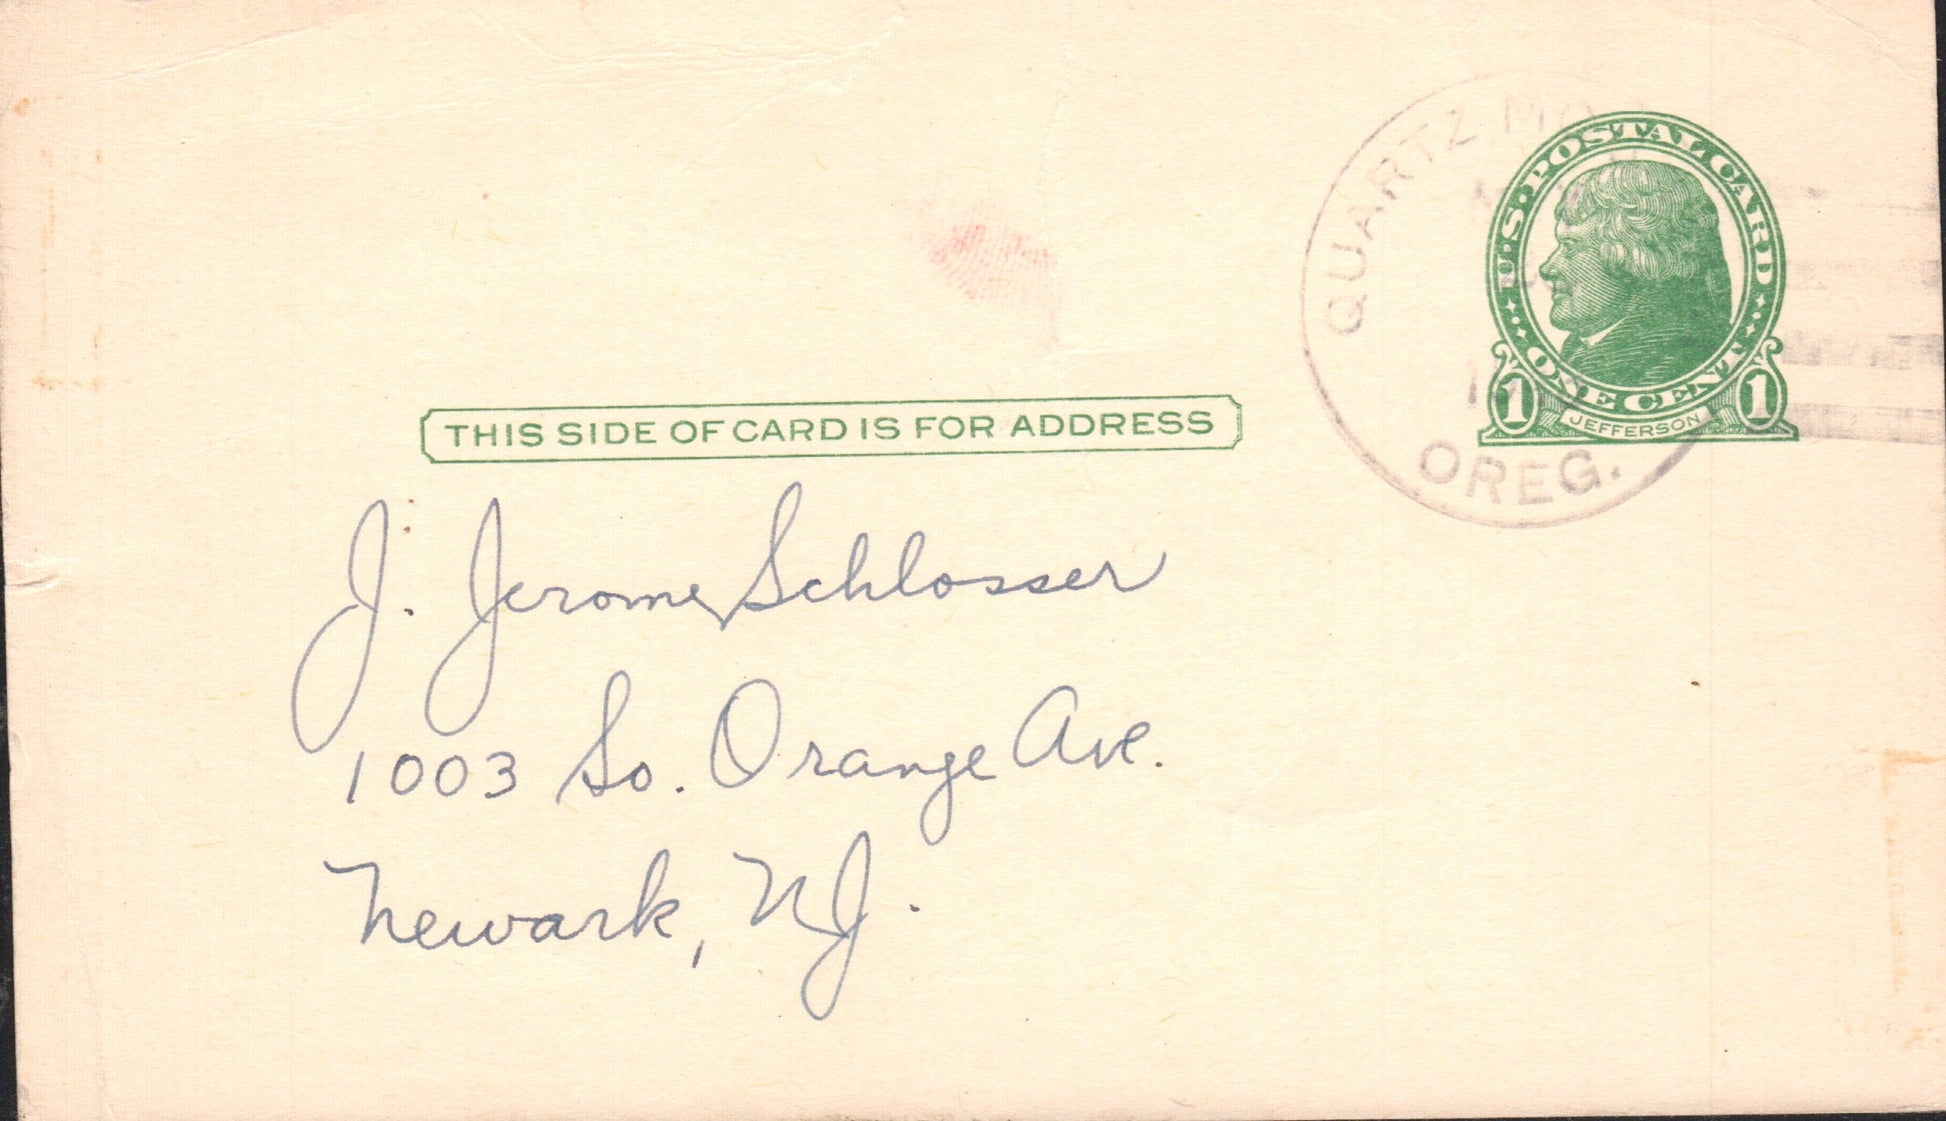 QUARTZ
OREG.
U.S. POSTAL CARD
ONE CENT
1 JEFFERSON 1
THIS SIDE OF CARD IS FOR ADDRESS
J. Jerome Schlosser
1003 So. Orange Ave.
Newark, NJ.